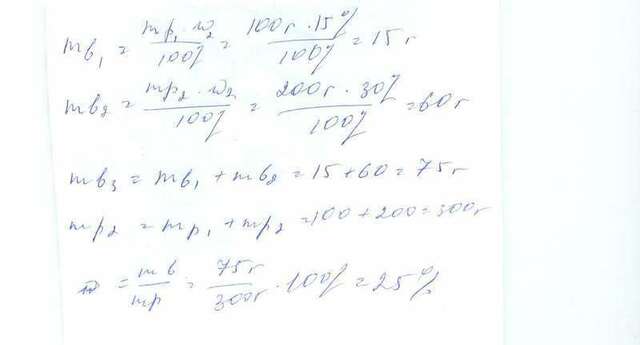 mв₁ = mp₁ · w₂ / 100% = 100г · 15% / 100% = 15 г
mв₂ = mp₂ · w₂ / 100% = 200г · 30% / 100% = 60г
mв₃ = mв₁ + mв₂ = 15 + 60 = 75г
mp₂ = mp₁ + mp₂ = 100 + 200 = 300г
w = mв / mp = 75г / 300г · 100% = 25%